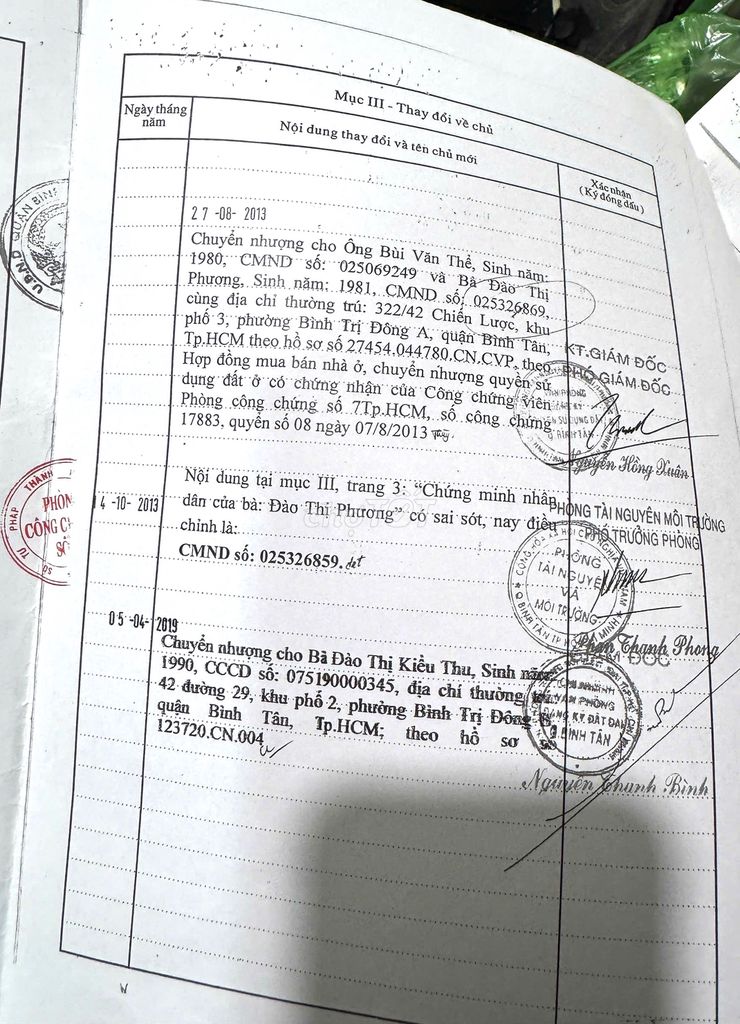 Mục III - Thay đổi về chủ
Ngày tháng năm
Nội dung thay đổi và tên chủ mới
Xác nhận
(Ký đóng dấu)
27-08-2013
Chuyển nhượng cho Ông Bùi Văn Thể, Sinh năm:
1980, CMND số: 025069249 và Bà Đào Thị
Phương, Sinh năm: 1981, CMND số: 025326869,
cùng địa chỉ thường trú: 322/42 Chiến Lược, khu
phố 3, phường Bình Trị Đông A, quận Bình Tân,
Tp.HCM theo hồ sơ số 27454.044780.CN.CVP, theo
Hợp đồng mua bán nhà ở, chuyển nhượng quyền sử
dụng đất ở có chứng nhận của Công chứng viên
Phòng công chứng số 7Tp.HCM, số công chứng
17883, quyển số 08 ngày 07/8/2013
KT.GIÁM ĐỐC
PHÓ GIÁM ĐỐC
Nguyễn Hồng Xuân
14-10-2013
Nội dung tại mục III, trang 3: “Chứng minh nhân
dân của bà: Đào Thị Phương” có sai sót, nay điều
chỉnh là:
CMND số: 025326859.
PHÒNG TÀI NGUYÊN MÔI TRƯỜNG
PHÓ TRƯỞNG PHÒNG
PHÒNG
TÀI NGUYÊN
VÀ
MÔI TRƯỜNG
Phan Thanh Phong
05-04-2019
Chuyển nhượng cho Bà Đào Thị Kiều Thu, Sinh năm
1990, CCCD số: 075190000345, địa chỉ thường
42 đường 29, khu phố 2, phường Bình Trị Đông
quận Bình Tân, Tp.HCM; theo hồ sơ số
123720.CN.004
GIÁM ĐỐC
CHI NHÁNH
VĂN PHÒNG
ĐĂNG KÝ ĐẤT ĐAI
Q.BÌNH TÂN
Nguyễn Thanh Bình
UBND QUẬN BÌNH
TƯ PHÁP THÀNH
PHÒN
CÔNG C
SỐ